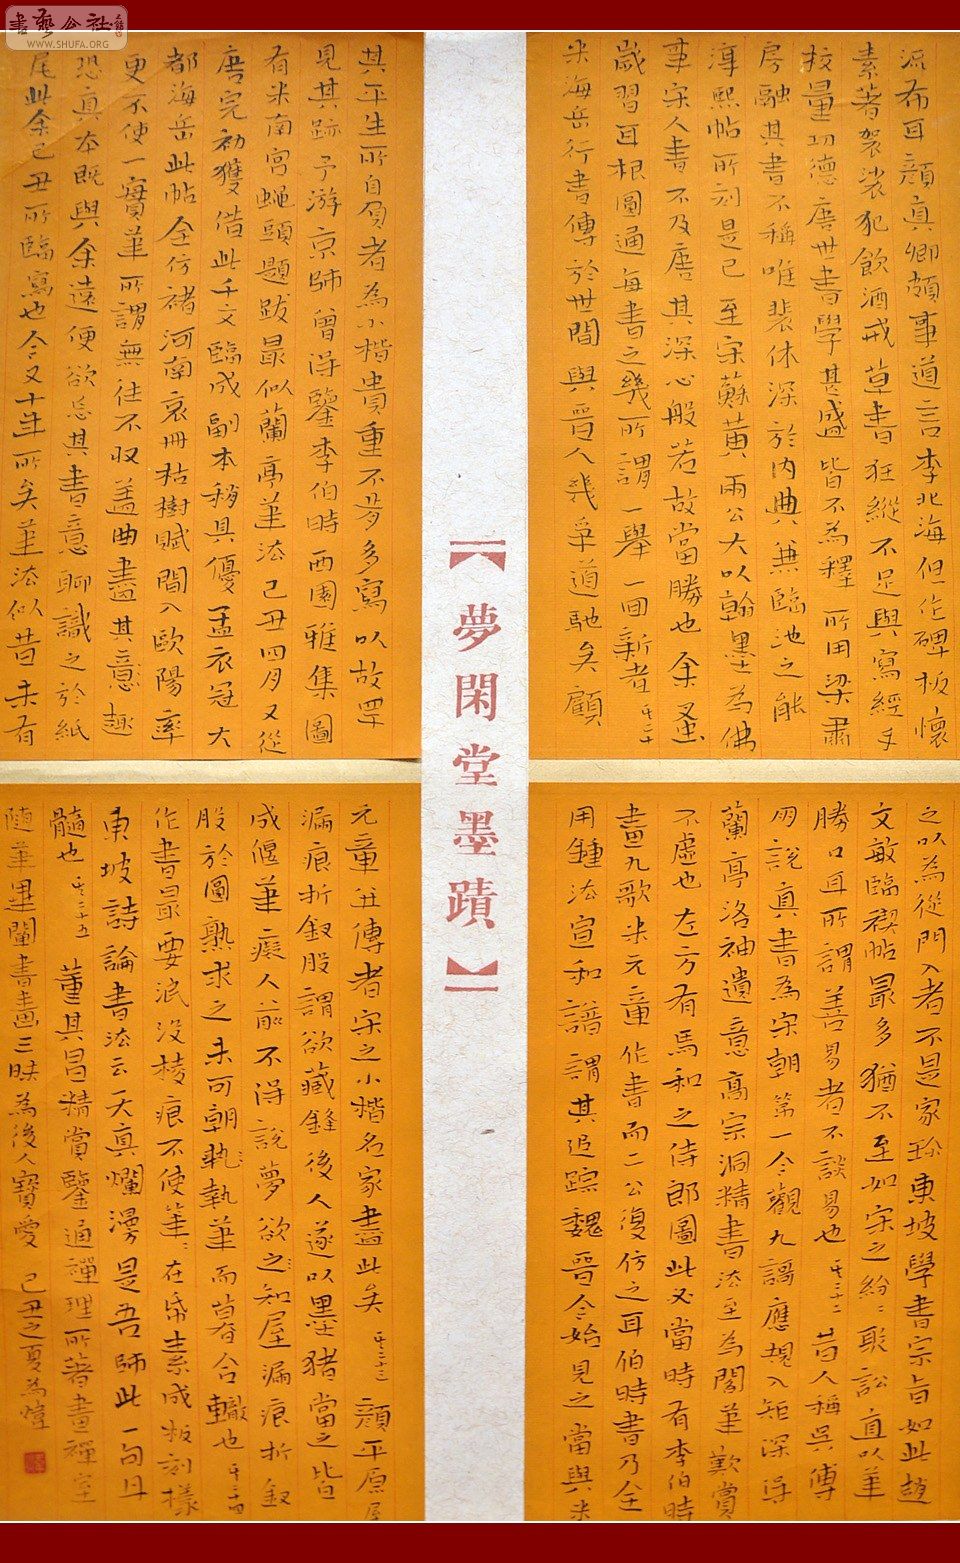 書藝公社
WWW.SHUFA.ORG
流布耳顏真卿頗事道言李北海但作碑板懷
素著袈裟犯飲酒戒草書狂縱不足與寫經手
校量功德唐世書學甚盛皆不為釋所用梁肅
房融其書不稱唯裴休深於內典兼臨池之能
淳熙帖所刻是已至宋蘇黃兩公大以翰墨為佛
事宋人書不及唐其深心般若故當勝也余蚤
歲習耳根圓通每書之幾所謂一舉一回新者其二十
米海岳行書傳於世間與晉人幾爭道馳矣顧
其平生所自負者為小楷貴重不肯多寫以故罕
見其跡予游京師曾得鑒李伯時西園雅集圖
有米南宮蠅頭題跋最似蘭亭筆法己丑四月又從
唐完初獲借此千文臨成副本稍具優孟衣冠大
都海岳此帖全仿褚河南哀冊枯樹賦間入歐陽率
更不使一實筆所謂無往不收蓋曲盡其意趣
恐真本既與余遠便欲忘其書意聊識之於紙
尾此余己丑所臨寫也今又十年所矣筆法似昔未有
【夢閑堂墨蹟】
之以為從門入者不是家珍東坡學書宗旨如此趙
文敏臨禊帖最多猶不至如宋之紛紛聚訟直以筆
勝口耳所謂善易者不談易也其二十二昔人稱吳傅
朋說真書為宋朝第一今觀九謌應規入矩深得
蘭亭洛神遺意高宗洞精書法至為閣筆歎賞
不虛也左方有馬和之侍郎圖此必當時有李伯時
畫九歌米元章作書而二公復仿之耳伯時書乃全
用鍾法宣和譜謂其追踪魏晉今始見之當與米
元章並傳者宋之小楷名家盡此矣其二十三顏平原屋
漏痕折釵股謂欲藏鋒後人遂以墨豬當之皆
成偃筆癡人前不得說夢欲知屋漏痕折釵
股於圓熟求之未可朝執筆而暮合轍也其二十四
作書最要泯沒稜痕不使筆筆在帋素成板刻樣
東坡詩論書法云天真爛漫是吾師此一句丹
髓也其二十五董其昌精賞鑒通禪理所著畫禪室
隨筆畢闡書畫三昧為後人寶愛己丑之夏為煒